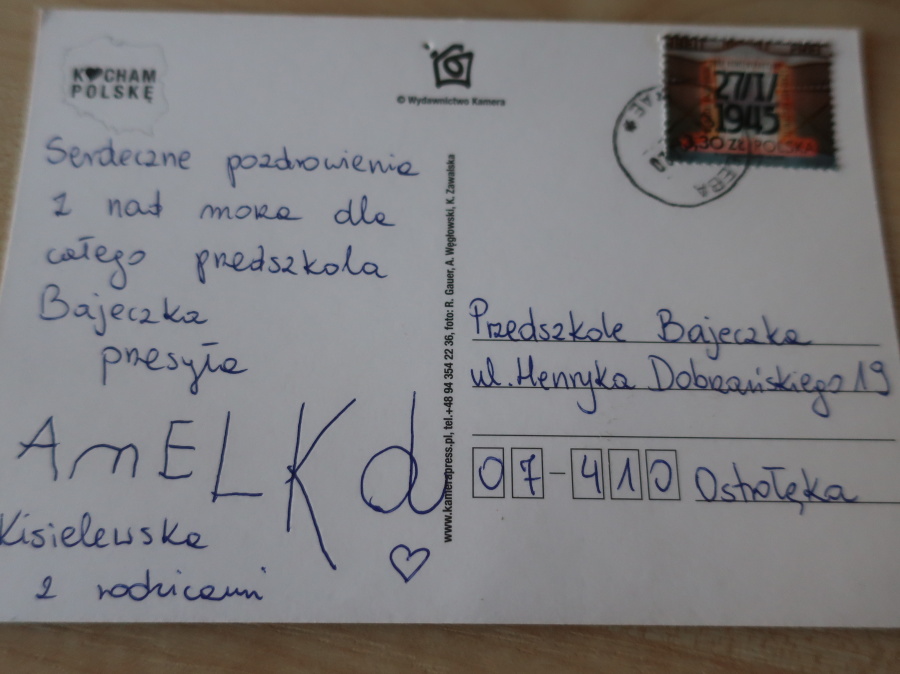 KOCHAM
POLSKĘ
© Wydawnictwo Kamera
27/I/
1945
3,30 ZŁ POLSKA
Serdeczne pozdrowienia
z nad morza dla
całego przedszkola
Bajeczka
przesyła
AmELKa
Kisielewska
z rodzicami
www.kamerapress.pl, tel.+48 94 354 22 36, foto: R. Gauer, A. Węglowski, K. Zawalska
Przedszkole Bajeczka
ul. Henryka Dobrzańskiego 19
07-410 Ostrołęka